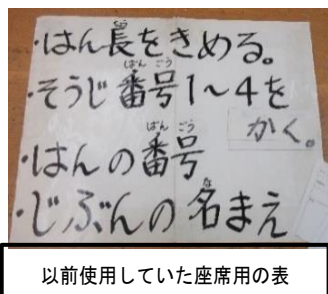 ・はん長をきめる。
・そうじ番号1～4を
かく。
・はんの番号
・じぶんの名まえ
以前使用していた座席用の表